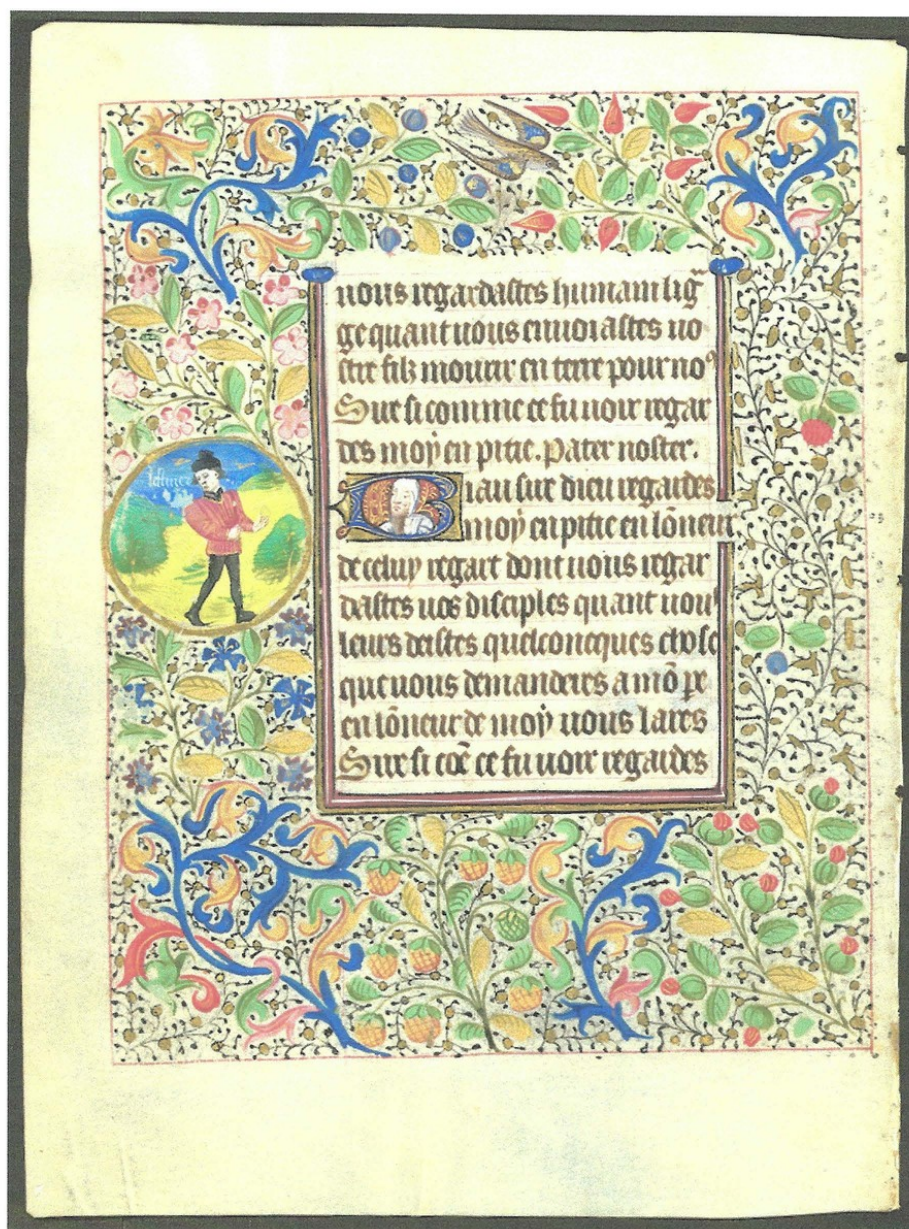 vous regardastes humain lig̃
ge quant vous envoiastes vo
stre filz mourir en terre pour noꝰ
Sire si comme ce fu voir regar
des moy en pitie. Pater noster.
Biau sire dieu regardes
moy en pitie en lõneur
de celuy regart dont vous regar
dastes vos disciples quant vou
leurs deistes quelconcques chose
que vous demanderes a mõ pe
en lõneur de moy vous lares
Sire si cõe ce fu voir regardes